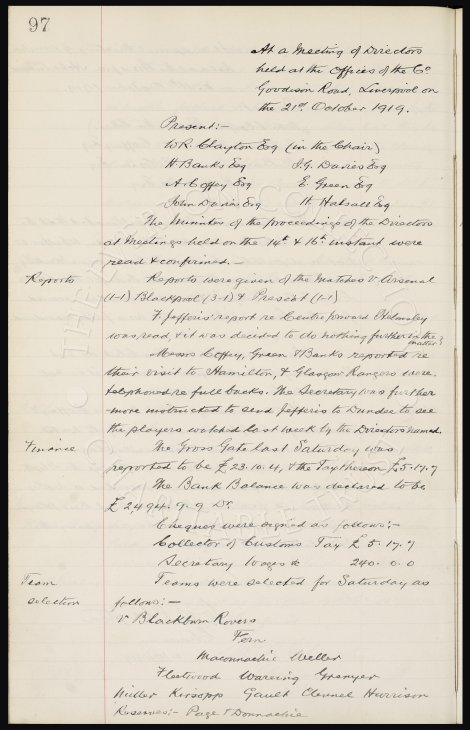 97
At a Meeting of Directors
held at the Offices of the Co
Goodison Road, Liverpool on
the 21st October 1919.
Present:-
W.R. Clayton Esq (in the Chair)
H Banks Esq J.G. Davies Esq
A. Coffey Esq E. Green Esq
John Davies Esq H. Halsall Esq
The Minutes of the proceedings of the Directors
at Meetings held on the 14th & 16th instant were
read & confirmed.-
Reports Reports were given of the Matches v Arsenal
(1-1) Blackpool (3-1) & Prescot (1-1)
T Jefferis' report re Centre forward
was read, & it was decided to do nothing further in the
matter.
Messrs Coffey, Green & Banks reported re
their visit to Hamilton, & Glasgow Rangers were
telephoned re full backs. The Secretary was further
more instructed to send Jefferis to Dundee to see
the players watched last week by the Directors named.
Finance The Gross Gate last Saturday was
reported to be £23.10.4, & the Tax thereon £5.17.7
The Bank Balance was declared to be
£2,494.9.9 Dr.
Cheques were signed as follows:-
Collector of Customs Tax £5.17.7
Secretary Wages &c 240.0.0
Team Teams were selected for Saturday as
selection follows:-
v Blackburn Rovers
Fern
Maconnachie Weller
Fleetwood Wareing Grenyer
Miller Kirsopps Gault Clennel Harrison
Reserves:- Page & Donnachie